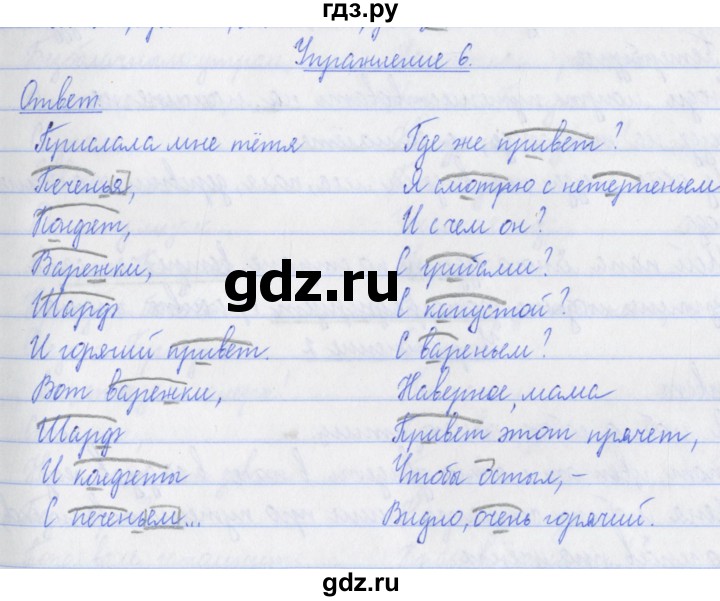 гдз.ру
Упражнение 6.
Ответ.
Прислала мне тётя
Печенья,
Конфет,
Варежки,
Шарф
И горячий привет.
Вот варежки,
Шарф
И конфеты
С печеньем...
Где же привет?
Я смотрю с нетерпеньем
И с чем он?
С грибами?
С капустой?
С вареньем?
Наверное, мама
Привет этот прячет,
Чтобы остыл, –
Видно, очень горячий.
gdz.ru
gdz.ru